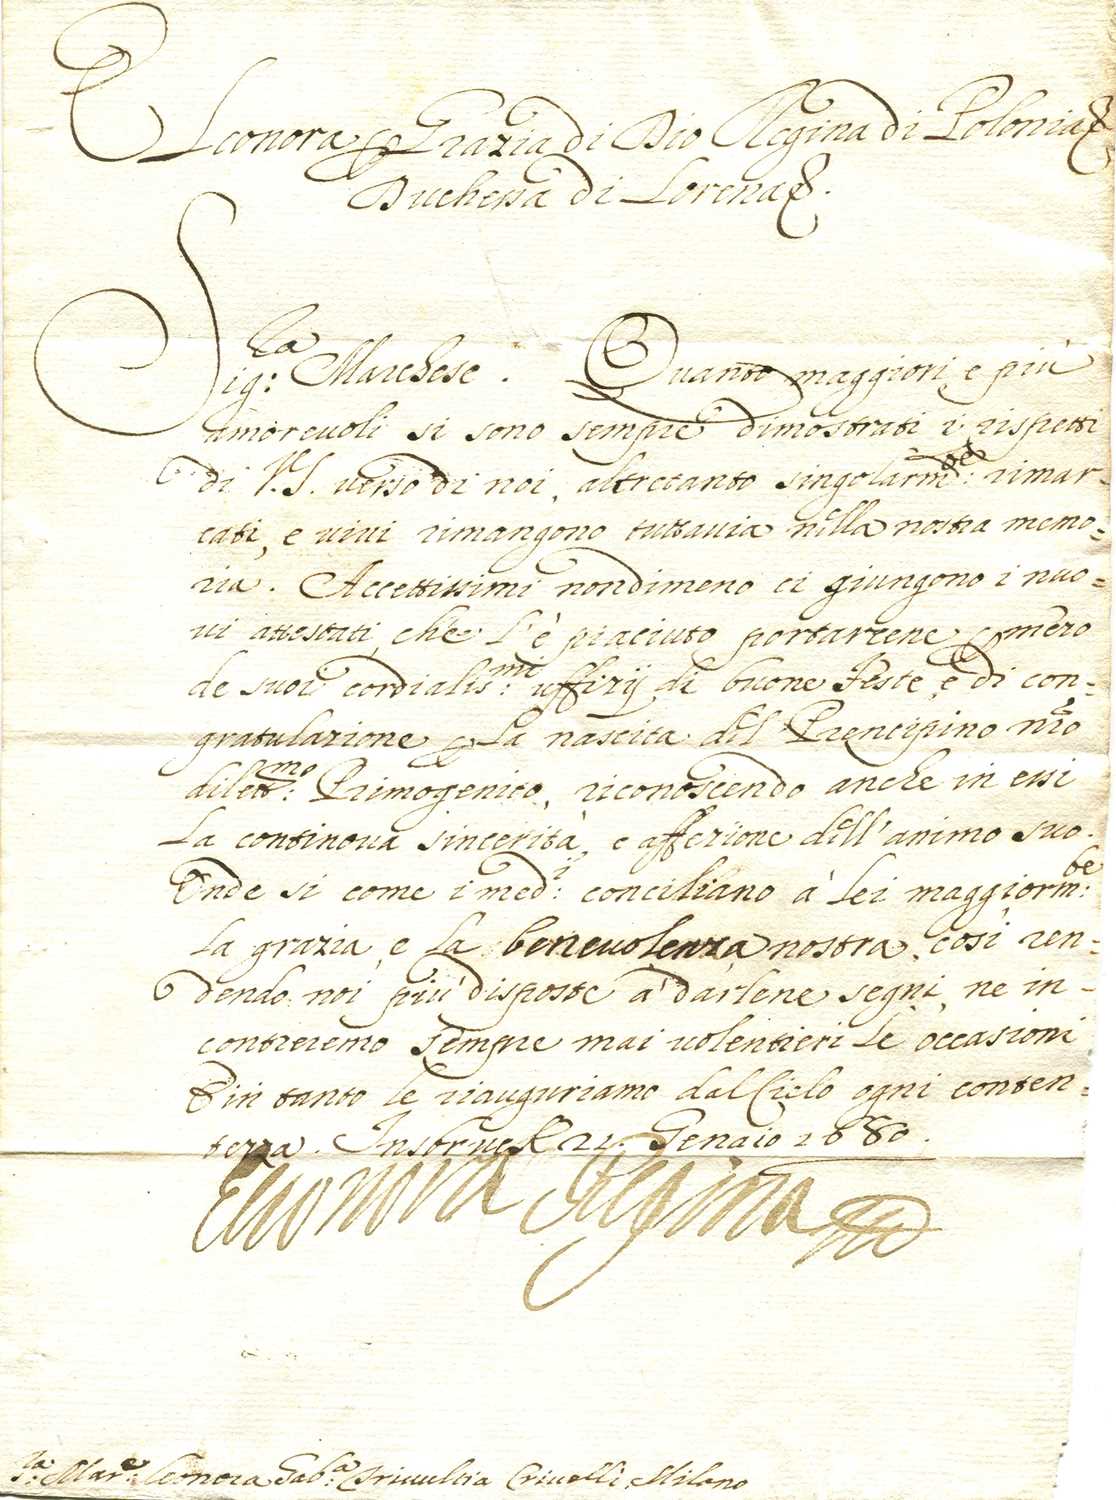 Eleonora per Grazia di Dio Regina di Polonia
Duchessa di Lorena.
Sig:ra Marchese. Quanto maggiori, e più
amorevoli si sono sempre dimostrati i rispetti
di V.S. verso di noi, altretanto singolarm:te rimar=
cati, e vivi rimangono tuttavia nella nostra memo=
ria. Accettissimi nondimeno ci giungono i nuo=
vi attestati, che l'è piaciuto portarcene per mezo
de suoi cordialis:mi uffizij di buone Feste, e di con=
gratulazione per la nascita del Prencipino nro
dilett:mo Primogenito, riconoscendo anche in essi
la continova sincerità, e affezione dell'animo suo.
Onde si come i med:i conciliano à lei maggiorm:te
la grazia, e la benevolenza nostra, così ren=
dendo noi più disposte à darlene segni, ne in=
contreremo sempre mai volentieri le occasioni
E in tanto le auguriamo dal Cielo ogni conten=
tezza. Insbruck 21. Genaio 1680.
Elionora Regina
S:ra Mar:e Leonora Gab:a Trivultia Crivelli, Milano